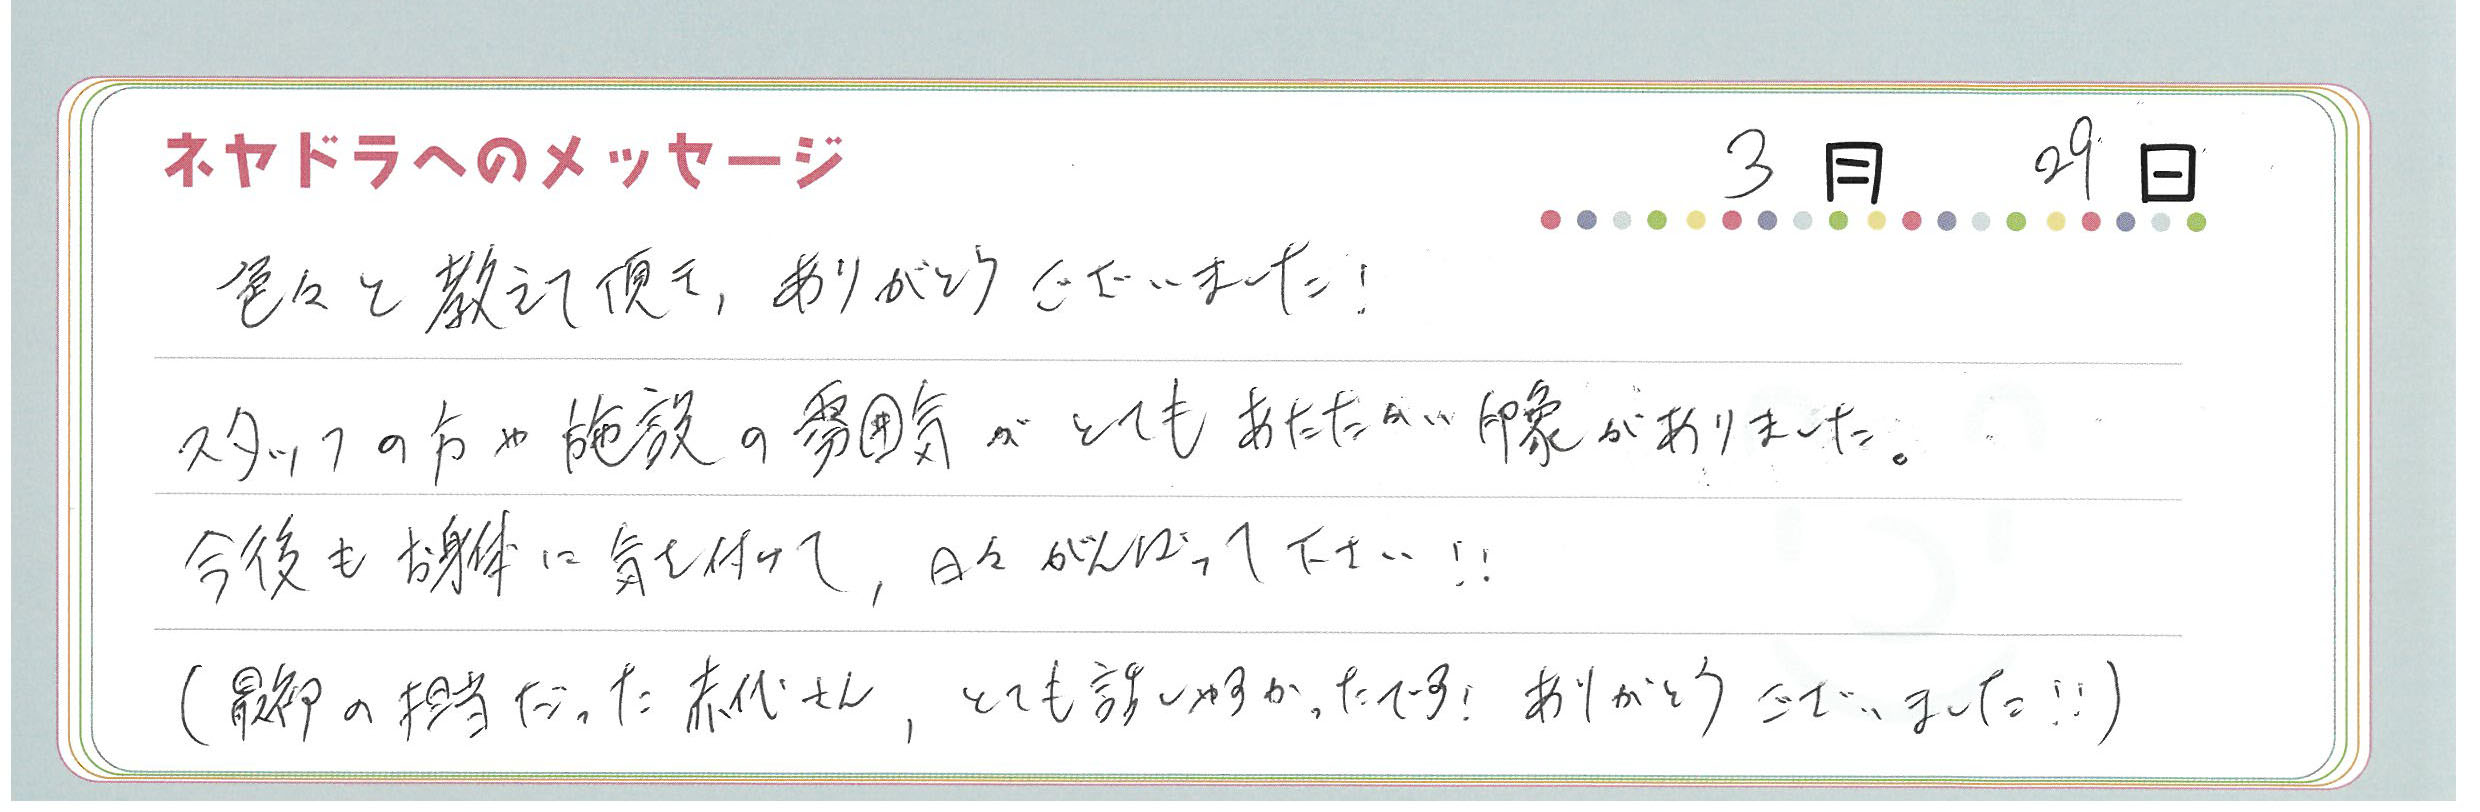 ネヤドラへのメッセージ 3月 29日
色々と教えて頂き,ありがとうございました!
スタッフの方や施設の雰囲気がとてもあたたかい印象がありました。
今後もお身体に気を付けて,日々がんばって下さい!!
(最初の担当だった赤代さん,とても話しやすかったです!ありがとうございました!!)